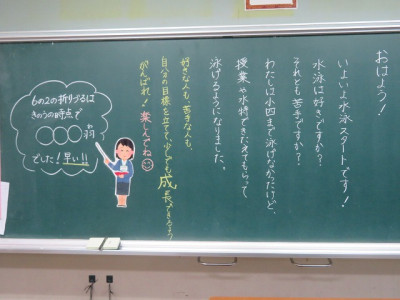 おはよう！
いよいよ水泳スタートです！
水泳は好きですか？
それとも苦手ですか？
わたしは小四まで泳げなかったけど、
授業や水特できたえてもらって
泳げるようになりました。
好きな人も、苦手な人も、
自分の目標を立てて、少しでも成長できるよう
がんばれ！楽しんでね
6の2の折りづるは
きのうの時点で
○○○羽
でした！早い!!